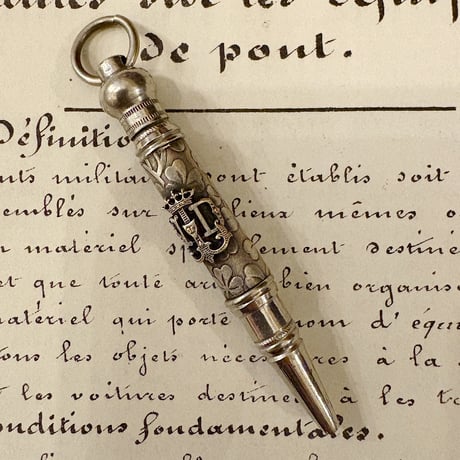 de pont.
Définitio
nts milita ont établis soit
emblés sur lieux mêmes o
n matériel sp lement destiné
et que toute ar bien organis
matériel qui porte nom d'équ
tous les objets néces res à la
t les voitures destiné à les tr
onditions fondamentales.